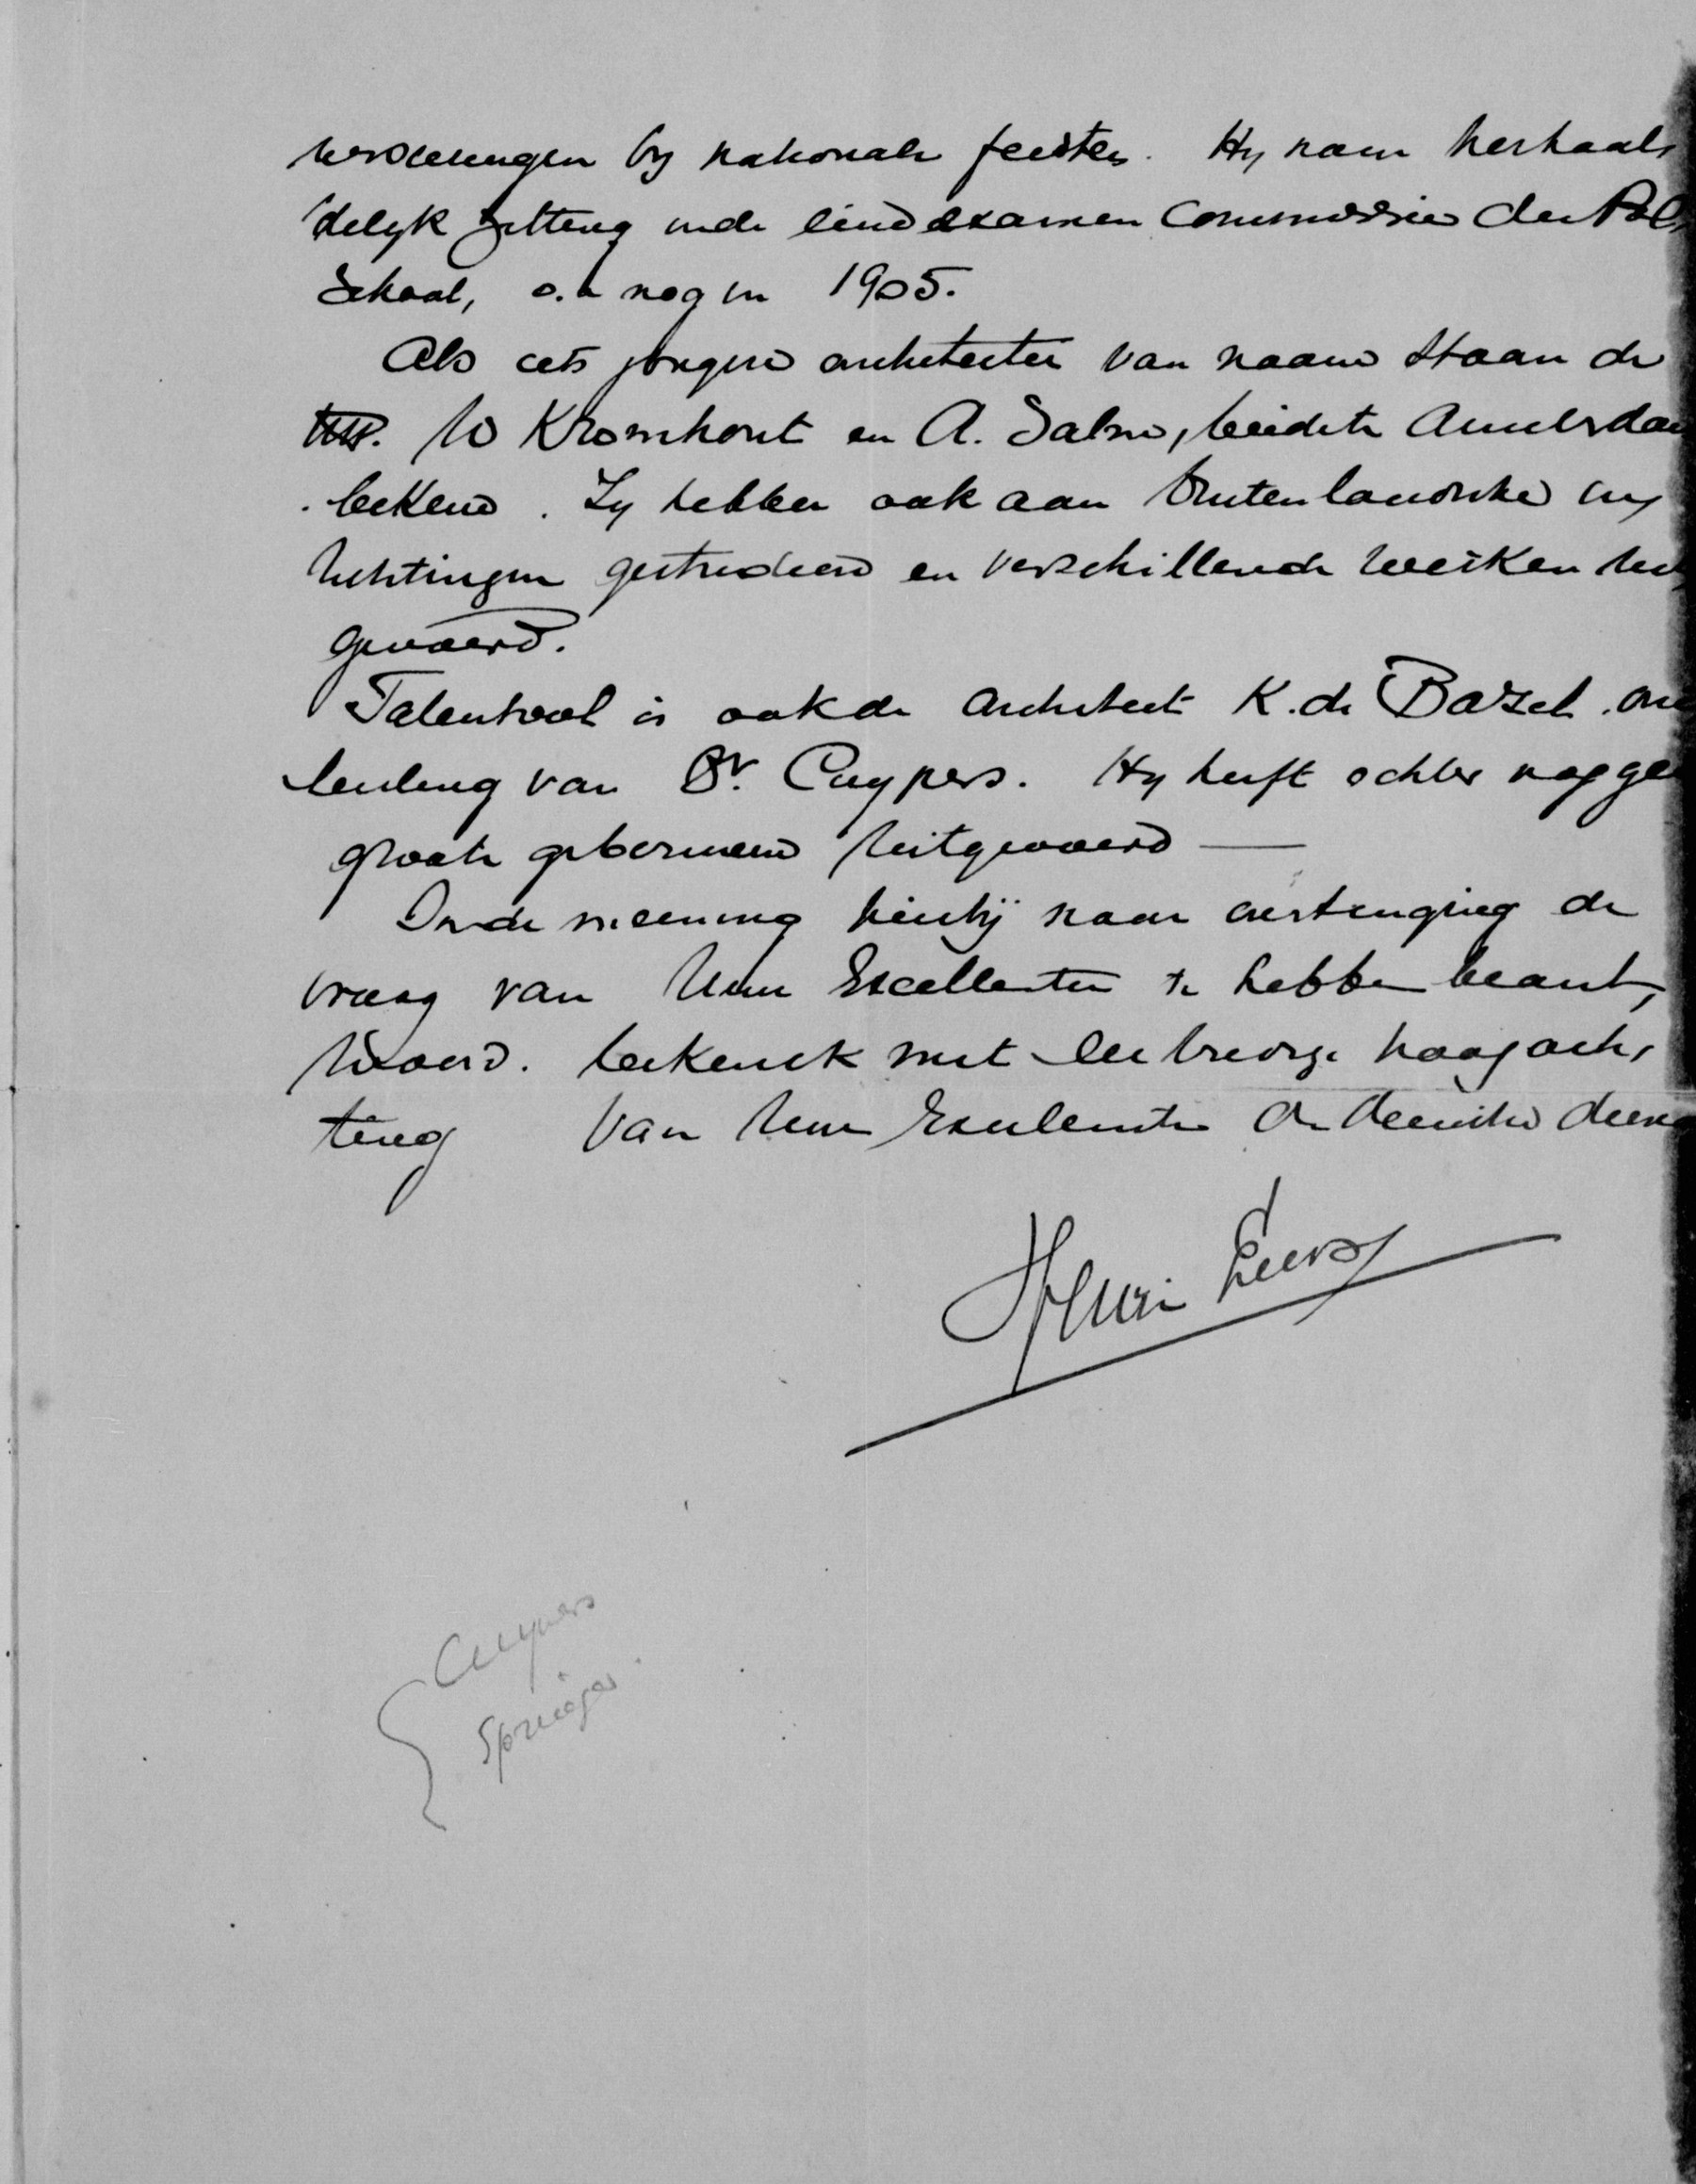 versieringen by nationale feesten. Hy nam herhaal,
delyk zitting in de eindexamen commissie der Pol,
School, o.a nog in 1905.
Als iets jongere architecten van naam staan de
W Kromhout en A. Salm, beide te Amsterdam
bekend. Zy hebben ook aan buitenlandsche in,
richtingen gestudeerd en verschillende werken uit
gevoerd.
Talentvol is ook de architect K. de Bazel. oud
leerling van Dr. Cuypers. Hy heeft echter nog geen
groote gebouwen uitgevoerd —
In de meening hierbij naar overtuiging de
vraag van Uwe Excellentie te hebben beant,
woord. teken ik met de hoogach,
ting van Uwe Excellentie de dienaar
Henri Evers
Cuypers
Springer